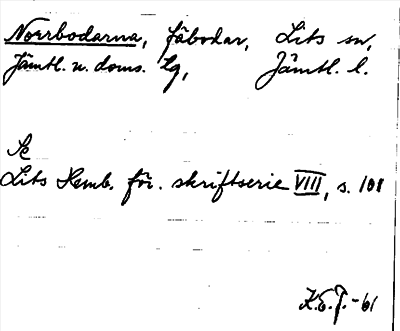 Norrbodarna, fäbodar, Lits sn,
Jämtl. n. doms. lg, Jämtl. l.
Se
Lits Hemb. för. skriftserie VIII, s. 108
K.E.J.-61